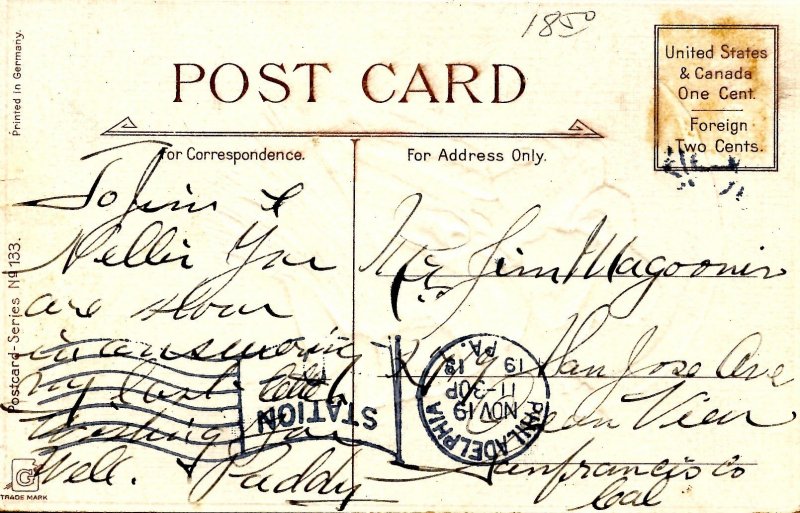 1850
Printed in Germany.
POST CARD
United States
& Canada
One Cent.
Foreign
Two Cents.
For Correspondence.
For Address Only.
To Jim &
Nellie You
are slow
in answering
my last letter
Wishing you
Well. Paddy
Mr Jim Magoonis
San Jose Ave
Ocean View
Sanfrancisco
Cal
PHILADELPHIA
PA.
NOV 19
11-30P
19 13
STATION
Postcard-Series No 133.
G
TRADE MARK